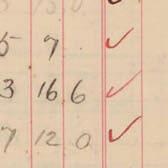 5 7 . ✓
3 16 6 ✓
7 12 0 ✓